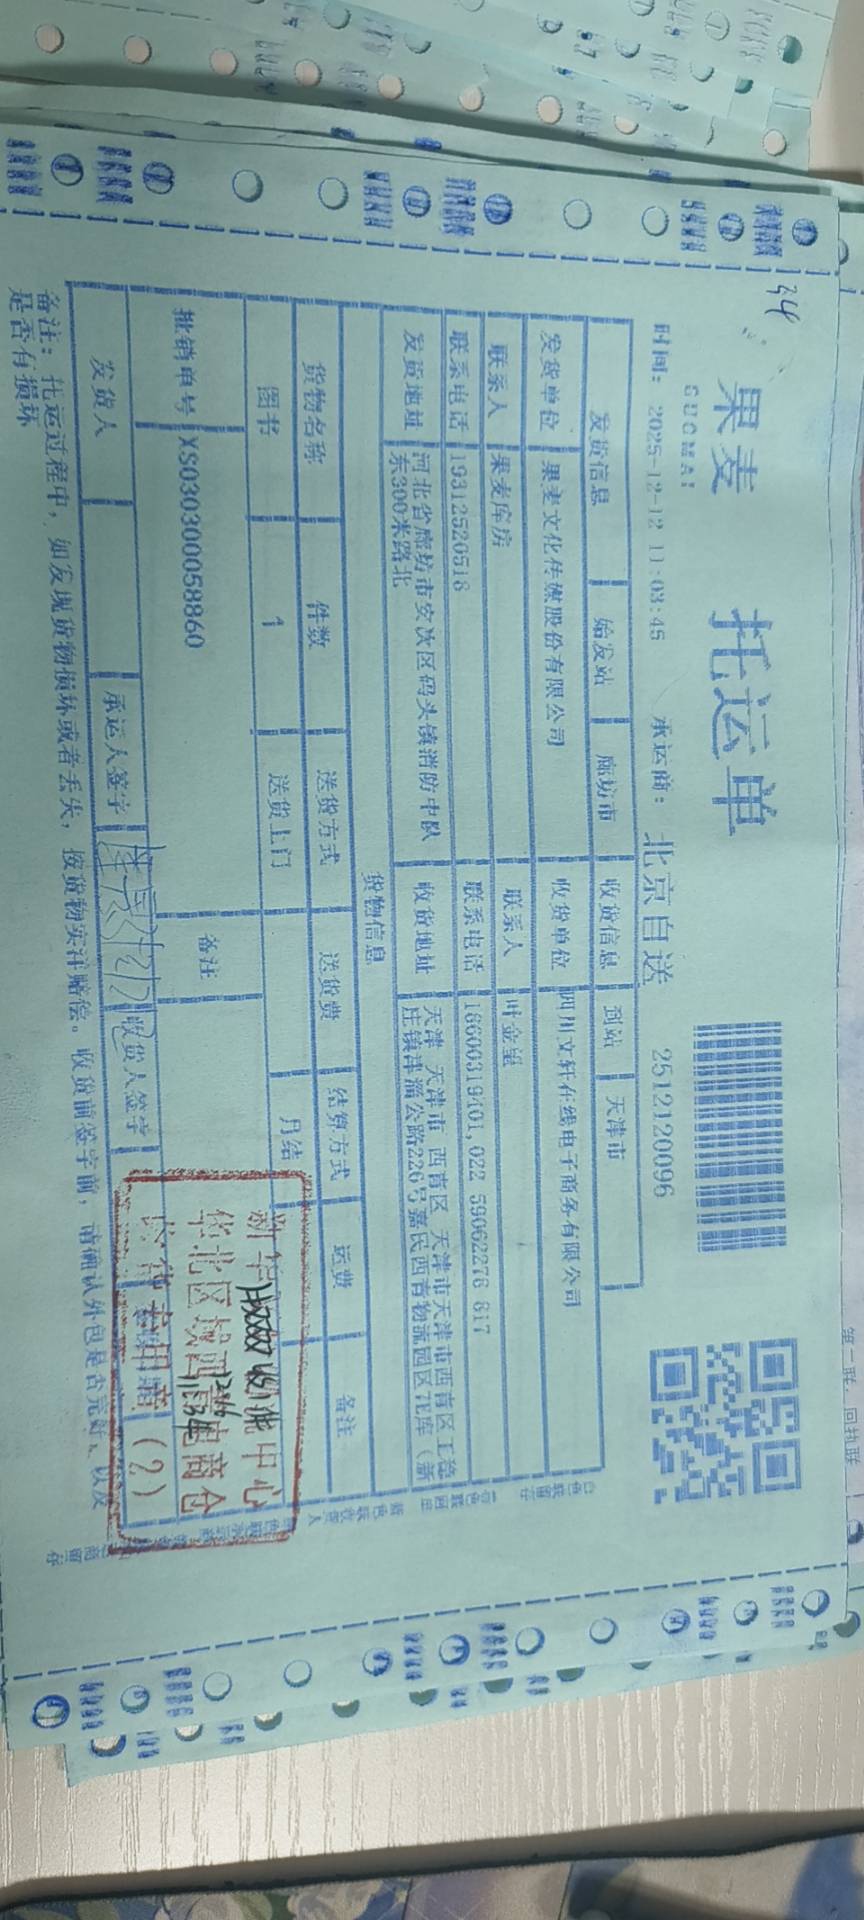 34
果麦
GUOMAI
托运单
时间: 2025-12-12 11:03:45 承运商: 北京自送 2512120096
发货信息 始发站 廊坊市 收货信息 到站 天津市
发货单位 果麦文化传媒股份有限公司 收货单位 四川文轩在线电子商务有限公司
联系人 果麦库房 联系人 叶金星
联系电话 19312520518 联系电话 18600319401,022 59062276 617
发货地址 河北省廊坊市安次区码头镇消防中队
东300米路北
收货地址 天津 天津市 西青区 天津市天津市西青区王稳
庄镇津淄公路226号嘉民西青物流园区7E库（新
货物信息
货物名称 件数 送货方式 送货费 结算方式 运费 备注
图书 1 送货上门 月结
批销单号 XS030300058860 备注
发货人 承运人签字 收货人签字
备注: 托运过程中, 如发现货物损坏或者丢失, 按货物实洋赔偿。收货前签字前, 请确认外包是否完好、以及
是否有损坏
华北区域西青电商仓
收货专用章 (2)
第二联: 回执联